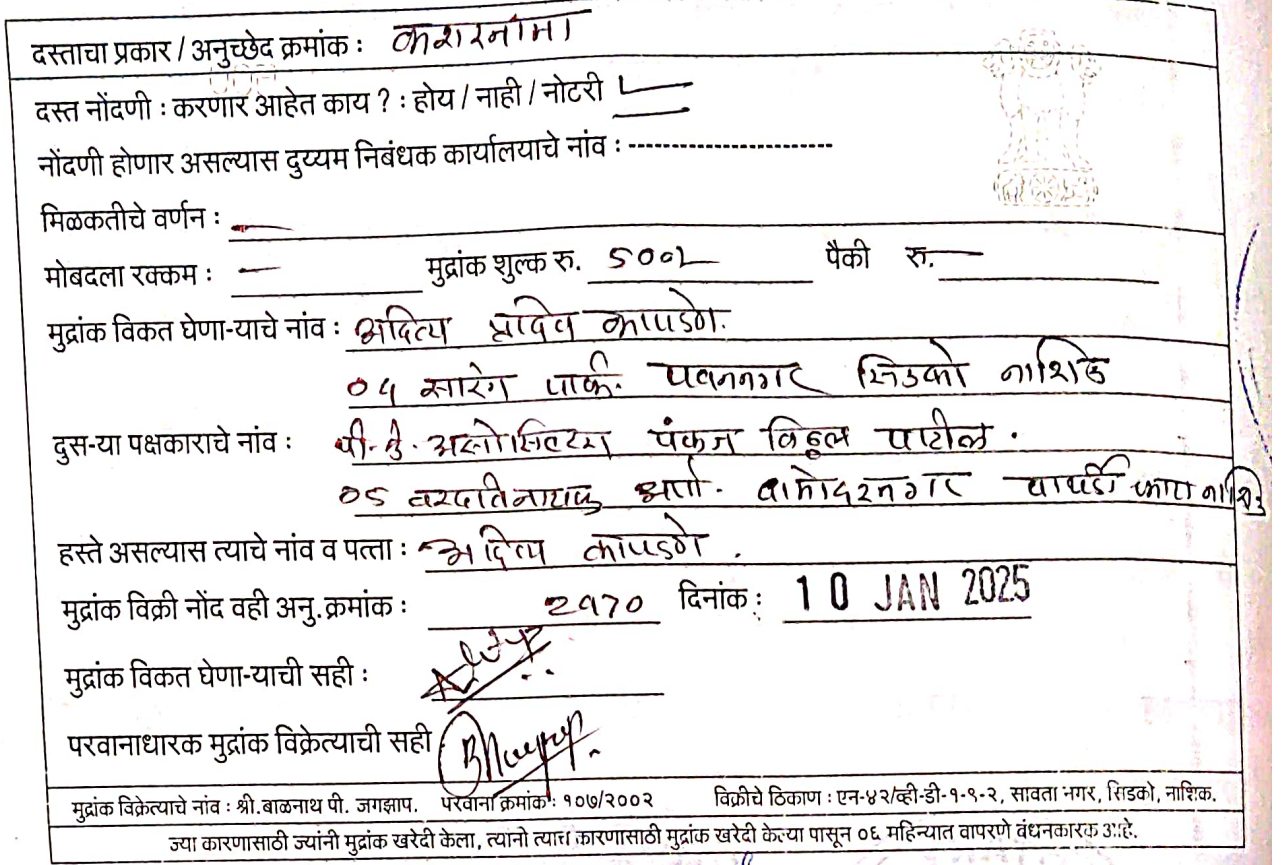 दस्ताचा प्रकार / अनुच्छेद क्रमांक : करारनामा
दस्त नोंदणी : करणार आहेत काय ? : होय / नाही / नोटरी
नोंदणी होणार असल्यास दुय्यम निबंधक कार्यालयाचे नांव : -----------------------
मिळकतीचे वर्णन : —
मोबदला रक्कम : — मुद्रांक शुल्क रु. 500/- पैकी रु. —
मुद्रांक विकत घेणा-याचे नांव : आदित्य प्रदिप कापडणे.
०५ सारंग पार्क. पवननगर सिडको नाशिक
दुस-या पक्षकाराचे नांव : पी. असोसिएटस पंकज विठ्ठल पाटील.
०८ वरदविनायक अपा. दामोदरनगर पाथर्डी फाटा नाशिक
हस्ते असल्यास त्याचे नांव व पत्ता : आदित्य कापडणे.
मुद्रांक विक्री नोंद वही अनु.क्रमांक : २९७० दिनांक : 10 JAN 2025
मुद्रांक विकत घेणा-याची सही :
परवानाधारक मुद्रांक विक्रेत्याची सही
मुद्रांक विक्रेत्याचे नांव : श्री.बाळनाथ पी. जगझाप. परवाना क्रमांक : १०७/२००२ विक्रीचे ठिकाण : एन-४२/व्ही-डी-१-९-२, सावता नगर, सिडको, नाशिक.
ज्या कारणासाठी ज्यांनी मुद्रांक खरेदी केला, त्यांनी त्याच कारणासाठी मुद्रांक खरेदी केल्या पासून ०६ महिन्यात वापरणे बंधनकारक आहे.